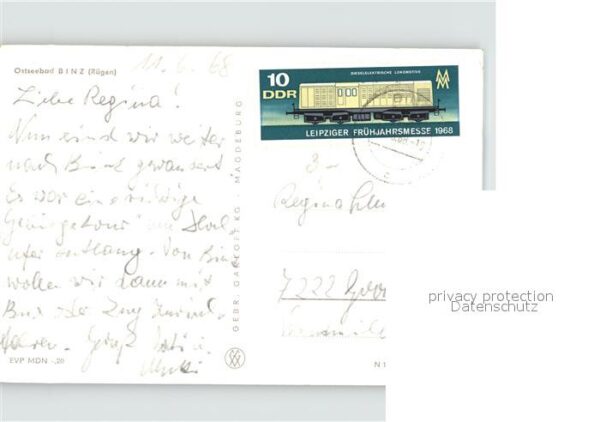 Ostseebad BINZ (Rügen)
11. 6. 68
Liebe Regina!
Nun sind wir weiter
nach Binz gewandert
Es war eine richtige
ufer entlang. Von Binz
wollen wir dann mit
Bus oder Zug zurück
fahren. Gruß
EVP MDN -,20
GEBR. GARLOFF KG · MAGDEBURG
10
DDR
DIESELELEKTRISCHE LOKOMOTIVE
MM
LEIPZIGER FRÜHJAHRSMESSE 1968
3-
Regina
7222
N 1
privacy protection
Datenschutz